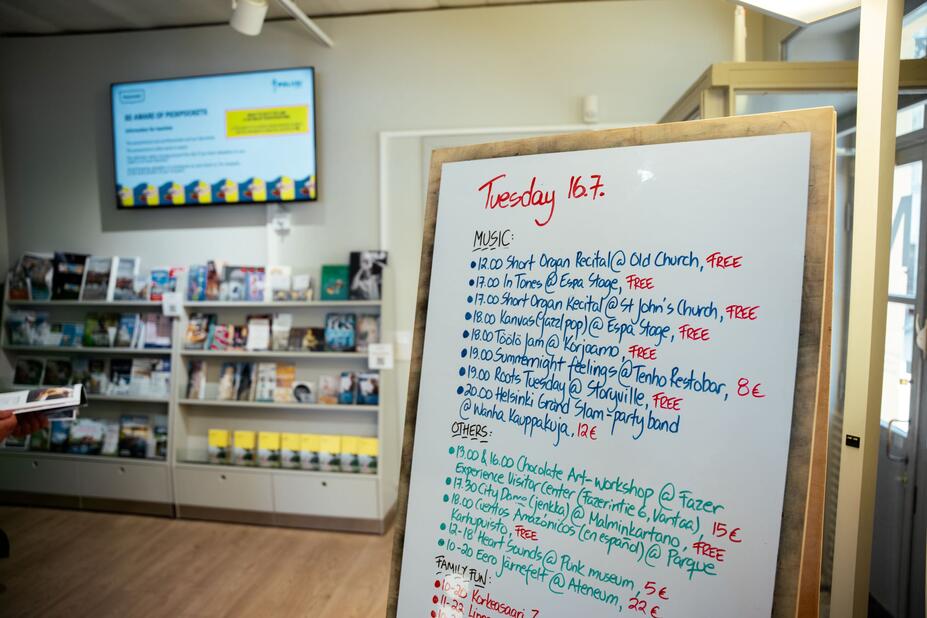 BE AWARE OF PICKPOCKETS
Information for tourists
POLIISI
Tuesday 16.7.
MUSIC:
• 12.00 Short Organ Recital @ Old Church, FREE
• 17.00 In Tones @ Espa Stage, FREE
• 17.00 Short Organ Recital @ St John's Church, FREE
• 18.00 Kanvas (jazz/pop) @ Espa Stage, FREE
• 18.00 Töölö Jam @ Korjaamo, FREE
• 19.00 Summernight feelings @ Tenho Restobar, 8€
• 19.00 Roots Tuesday @ Storyville, FREE
• 20.00 Helsinki Grand Slam-party band
@ Wanha Kauppakuja, 12€
OTHERS:
• 13.00 & 16.00 Chocolate Art-workshop @ Fazer
Experience Visitor Center (Fazerintie 6, Vantaa), 15€
• 17.30 City Damo (jenkka) @ Malminkartano, FREE
• 18.00 Cuentos Amazónicos (en español) @ Parque
Karhupuisto, FREE
• 12-18 Heart Sounds @ Punk museum, 5€
• 10-20 Eero Järnefelt @ Ateneum, 22€
FAMILY FUN:
• 10-20 Korkeasaari
• 11-22